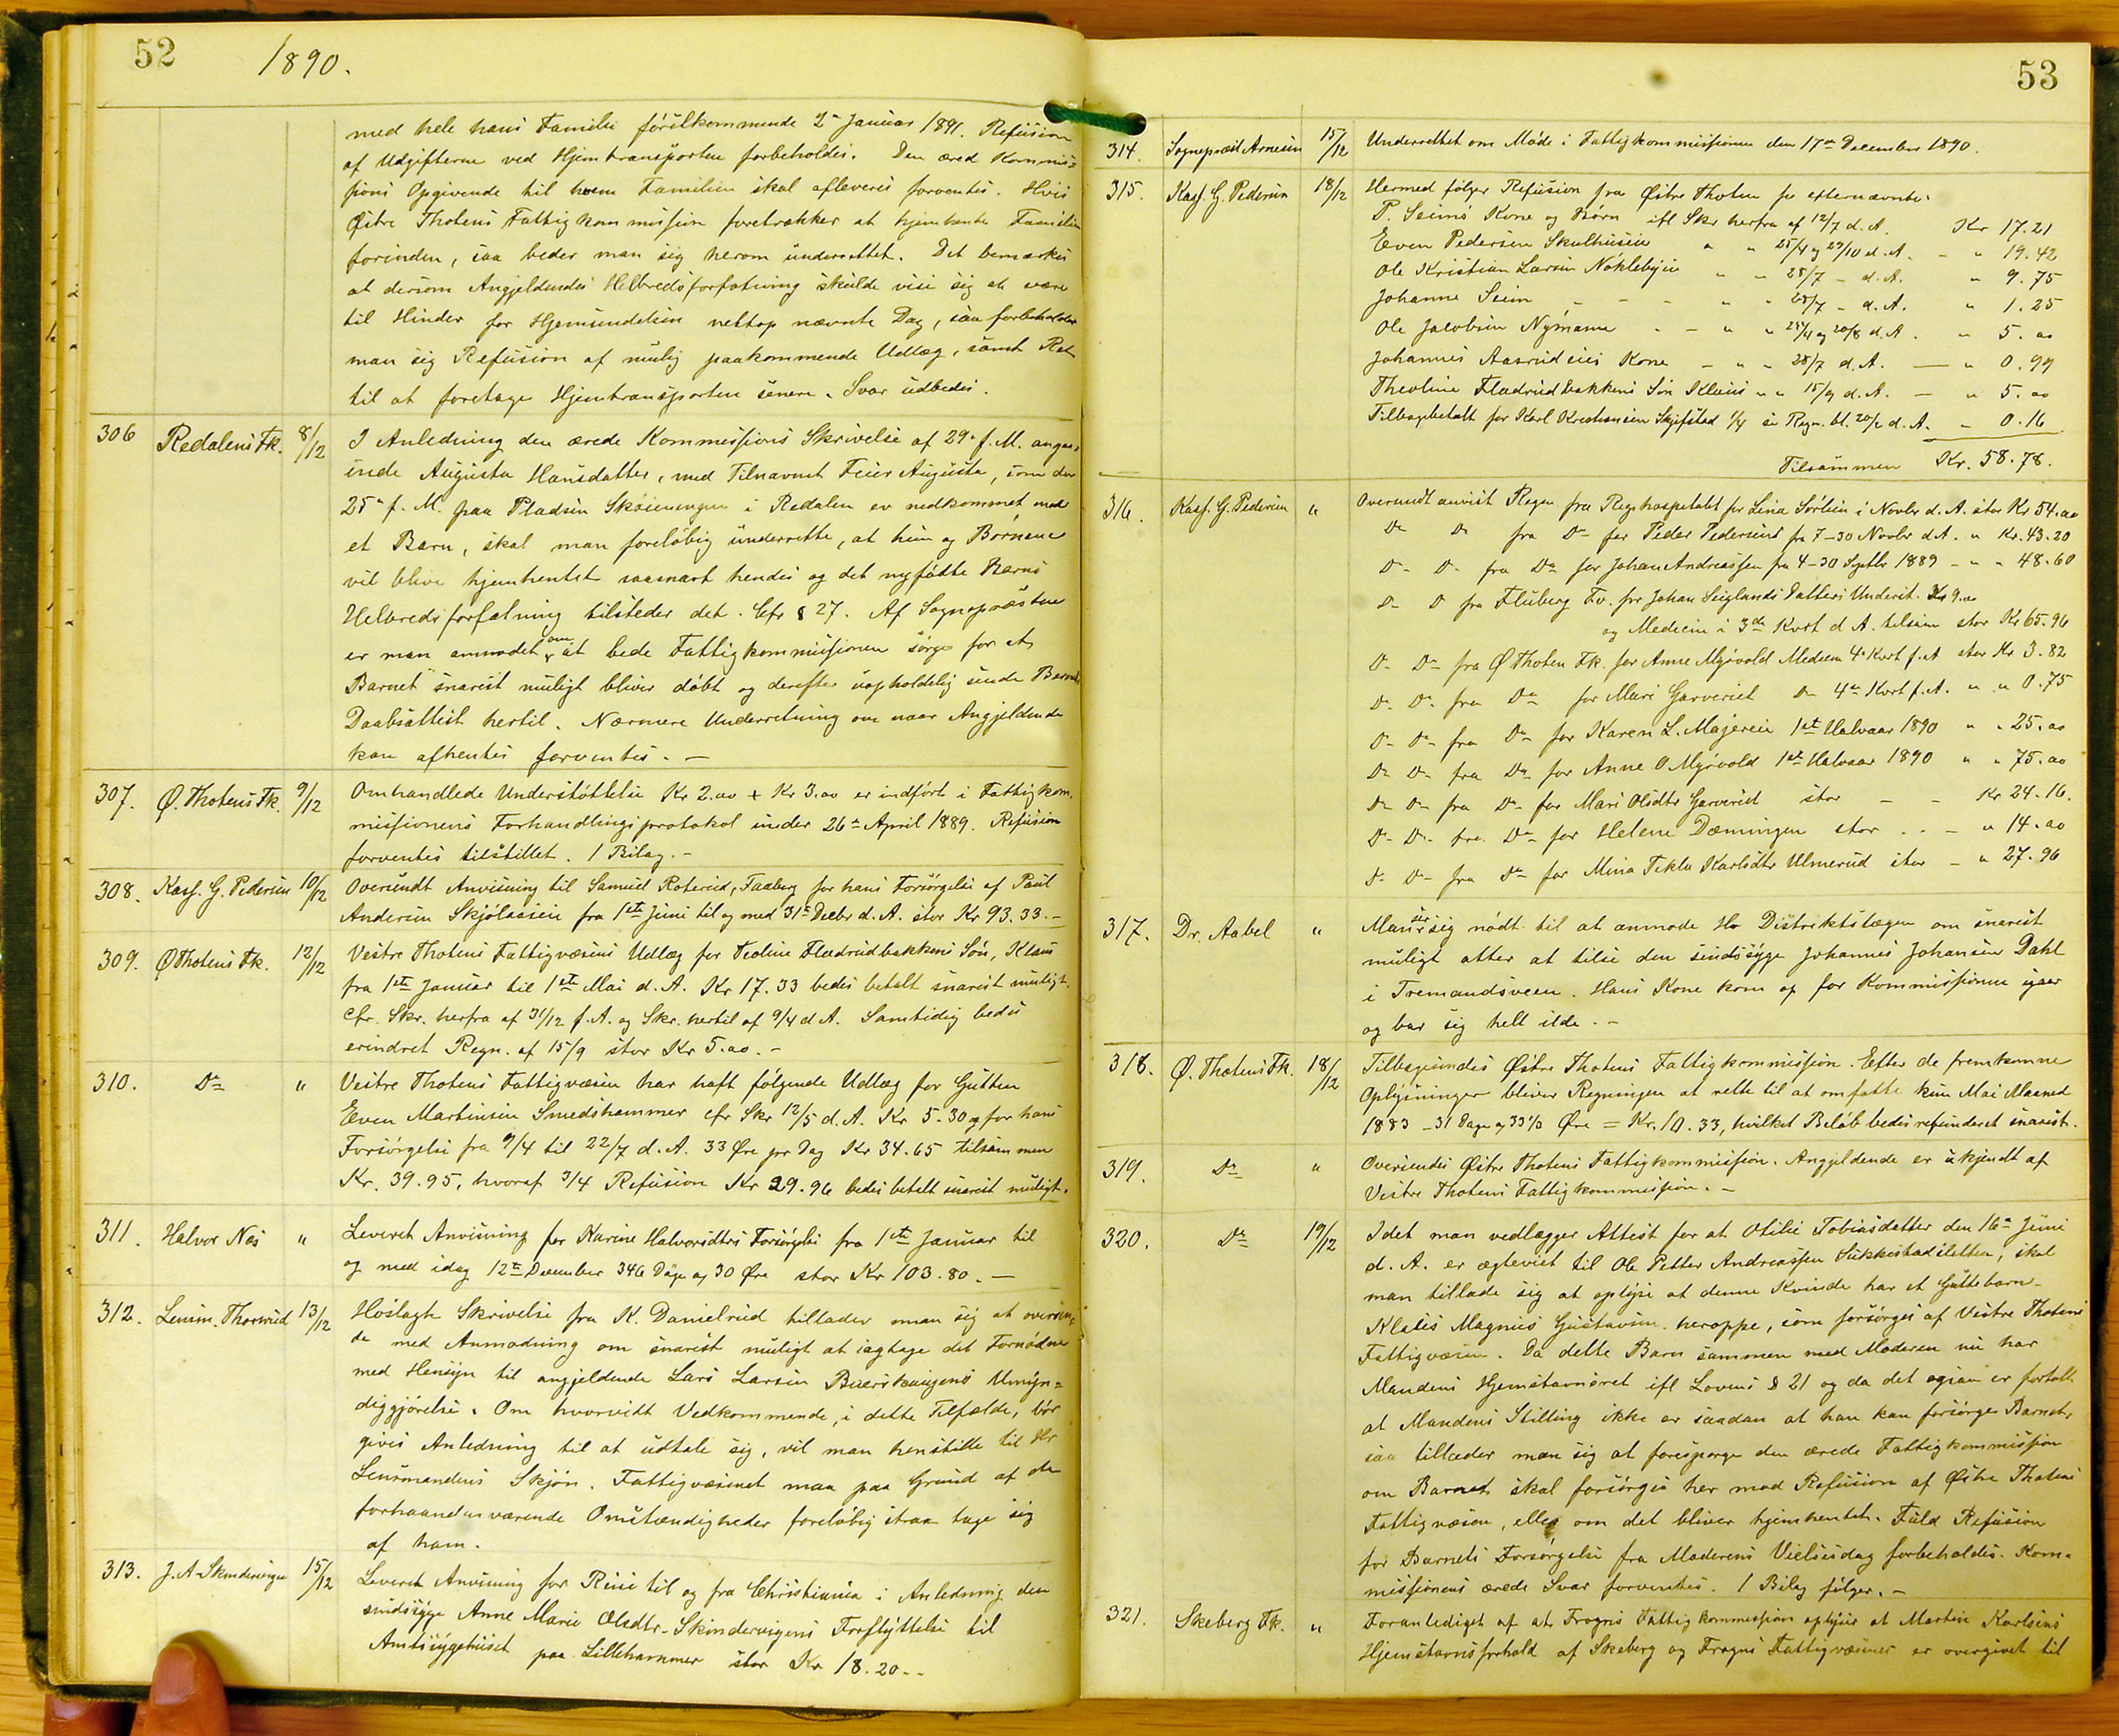 52
1890.
med hele hans Familie förstkommende 2den Januar 1891. Refusion
af Udgifterne ved Hjemtransporten forbeholdes. Den æred Kommis=
sjons Opgivende til hvem Familien skal afleveres forventes. Hvis
Östre Thotens Fattigkommission foretrækker at hjemhente Familien
forinden, saa beder man sig herom underrettet. Det bemærkes
at dersom Angjeldendes Helbredsforfatning skulde vise sig at være
til Hinder for Hjemsendelsen netop nævnte Dag, saa forbeholder
man sig Refusion af mulig paakommende Udlæg, samt Ret
til at foretage Hjemtransporten senere. Svar udbedes.
306 Redalens Fk. 8/12 I Anledning den ærede Kommissions Skrivelse af 29. f. M. angaa=
ende Augusta Hansdatter, med Tilnavnet Feier Augusta, som den
25de f. M. paa Pladsen Skøienengen i Redalen er nedkommet med
et Barn, skal man foreløbig underrette, at hun og Børnene
vil blive hjemhentet saasnart hendes og det nyfødte Barns
Helbredsforfatning tilsteder det. Cfr § 27. Af Sognepræsten
er man anmodet om at bede Fattigkommissionen sørge for at
Barnet snarest muligt bliver døbt og derefter uopholdelig sende Barnets
Daabsattest hertil. Nærmere Underretning om naar Angjeldende
kan afhentes forventes. —
307. Ø. Thotens Fk. 9/12 Omhandlede Understøttelse Kr 2.00 + Kr 3.00 er indført i Fattigkom.
missionens Forhandlingsprotokol under 26de April 1889. Refusion
forventes tilstillet. 1 Bilag. -
308. Kass. G. Pedersen 10/12 Oversendt Anvisning til Samuel Roterud, Faaberg for hans Forsørgelse af Paul
Andersen Skjølaaseie fra 1ste Juni til og med 31te Decbr d. A. stor Kr 93.33. -
309. Ø Thotens Fk. 12/12 Vestre Thotens Fattigvæsens Udlæg for Teoline Fladrudbakkens Søn, Klaus
fra 1ste Januar til 1ste Mai d. A. Kr 17.33 bedes betalt snarest muligt.
Cfr. Skr. herfra af 31/12 f. A. og Skr. hertil af 9/4 d A. Samtidig bedes
erindret Regn. af 15/9 stor Kr 5.00. -
310. Do " Vestre Thotens Fattigvæsen har haft følgende Udlæg for Gutten
Even Martinsen Smedshammer cfr Skr 12/5 d. A. Kr 5.30 og for hans
Forsørgelse fra 9/4 til 22/7 d. A. 33 Øre pr Dag Kr 34.65 tilsammen
Kr. 39.95, hvoraf 3/4 Refusion Kr 29.96 bedes betalt snarest muligt.
311. Halvor Næs " Leveret Anvisning for Karine Halvorsdtrs Forsørgelse fra 1ste Januar til
og med idag 12te December 346 Dage a 30 Øre stor Kr 103.80. —
312. Lensm. Thorsrud 13/12 Hoslagte Skrivelse fra K. Danielrud tillader man sig at oversen=
de med Anmodning om snarest muligt at iagtage det Fornødne
med Hensyn til angjeldende Lars Larsen Buerskaugens Umyn=
diggjørelse. Om hvorvidt Vedkommende, i dette Tilfælde, bør
gives Anledning til at udtale sig, vil man henstille til Hr
Lensmandens Skjøn. Fattigvæsenet maa paa Grund af de
forhaandenværende Omstændigheder foreløbig straa tage sig
af ham.
313. J. A. Skindervigen 15/12 Leveret Anvisning for Reise til og fra Christiania i Anledning den
sindssyge Anne Marie Olsdtr. Skindervigens Fraflyttelse til
Amtssygehuset paa Lillehammer stor Kr 18.20. -
53
314. Sognepræst Arnesen 15/12 Underrettet om Møde i Fattigkommissionen den 17de December 1890.
315. Kass. G. Pedersen 18/12 Hermed følger Refusion fra Østre Thoten for efternævnte.
P. Seims Kone og Børn ifl Skr herfra af 12/7 d. A. Kr 17.21
Even Pedersen Skulhuseie " " 25/4 og 29/10 d. A. - " 19.42
Ole Kristian Larsen Nøklebyeie " " 28/7 - d. A. " 9.75
Johanne Seim - - - " " 28/7 - d. A. " 1.25
Ole Jacobsen Nymann - - " " 24/4 og 20/8 d. A. " 5.00
Johannes Aasrudeies Kone - " " 28/7 d. A. — " 0.99
Theoline Fladrudbakkens Søn Klaus " " 15/9 d. A. — " 5.00
Tilbagebetalt for Karl Kristiansen Skjefstad 1/4 se Regn. bl. 20/2 d. A. " 0.16
Tilsammen Kr. 58.78.
316. Kass. G. Pedersen " Oversendt anvist Regn fra Rigshospitalet for Lina Sørlien i Novbr d. A. stor Kr 54.00
Do Do fra Do for Peder Pedersens fra 7-30 Novbr d A. " Kr. 43.20
Do Do fra Do for Johan Andreassen fra 4-30 Septbr 1889 - " " 48.60
Do Do fra Fluberg Fv. for Johan Seiglands Datters Underst. Kr 9.00
og Medicin i 3de Kvrt d A. tilsam stor Kr 65.96
Do Do fra Ø Thoten Fk. for Anne Myrvold Medicin 4de Kvrt f. A stor Kr 3.82
Do Do fra Do for Mari Garveriet Do 4de Kvrt f. A. " " 0.75
Do Do fra Do for Karen L. Majereie 1ste Halvaar 1890 " " 25.00
Do Do fra Do for Anne O Myrvold 1ste Halvaar 1890 " " 75.00
Do Do fra Do for Mari Olsdtr Garveriet stor - - Kr 24.16.
Do Do fra Do for Helene Dæmningen stor . . - " 14.00
Do Do fra Do for Mina Tekla Karlsdtr Ulnerud stor - " 27.96
317. Dr. Aabel " Man ser sig nødt til at anmode Hr Distriktslægen om snarest
muligt atter at tilse den sindssyge Johannes Johansen Dahl
i Tremandsveen. Hans Kone kom op for Kommissionen igaar
og bar sig helt ilde. -
318. Ø. Thotens Fk. 18/12 Tilbagesendes Østre Thotens Fattigkommission. Efter de fremkomne
Oplysninger bliver Regningen at rette til at omfatte kun Mai Maaned
1883 - 31 Dage a 33 1/3 Øre = Kr. 10.33, hvilket Beløb bedes refunderet snarest.
319. Do " Oversendes Østre Thotens Fattigkommission. Angjeldende er ukjendt af
Vestre Thotens Fattigkommission. -
320. Do 19/12 Idet man vedlægger Attest for at Otilie Tobiasdatter den 16de Juni
d. A. er ægteviet til Ole Petter Andreassen Sukkestadsletten, skal
man tillade sig at oplyse at denne Kvinde har et Guttebarn
Klaus Magnus Gustavsen heroppe, som forsørges af Vestre Thotens
Fattigvæsen. Da dette Barn sammen med Moderen nu har
Mandens Hjemstavnsret ifl Lovens § 21 og da det ogsaa er fortalt
at Mandens Stilling ikke er saadan at han kan forsørge Barnet,
saa tillader man sig at forespørge den ærede Fattigkommission
om Barnet skal forsørges her mod Refusion af Østre Thotens
Fattigvæsen, eller om det bliver hjemhentet. Fuld Refusion
for Barnets Forsørgelse fra Moderens Vielsesdag forbeholdes. Kom=
missionens ærede Svar forventes. 1 Bilag følger. -
321. Skeberg Fk. " Foranlediget af at Frogns Fattigkommission oplyser at Martin Karlsens
Hjemstavnsforhold af Skeberg og Frogns Fattigvæsener er overgivet til